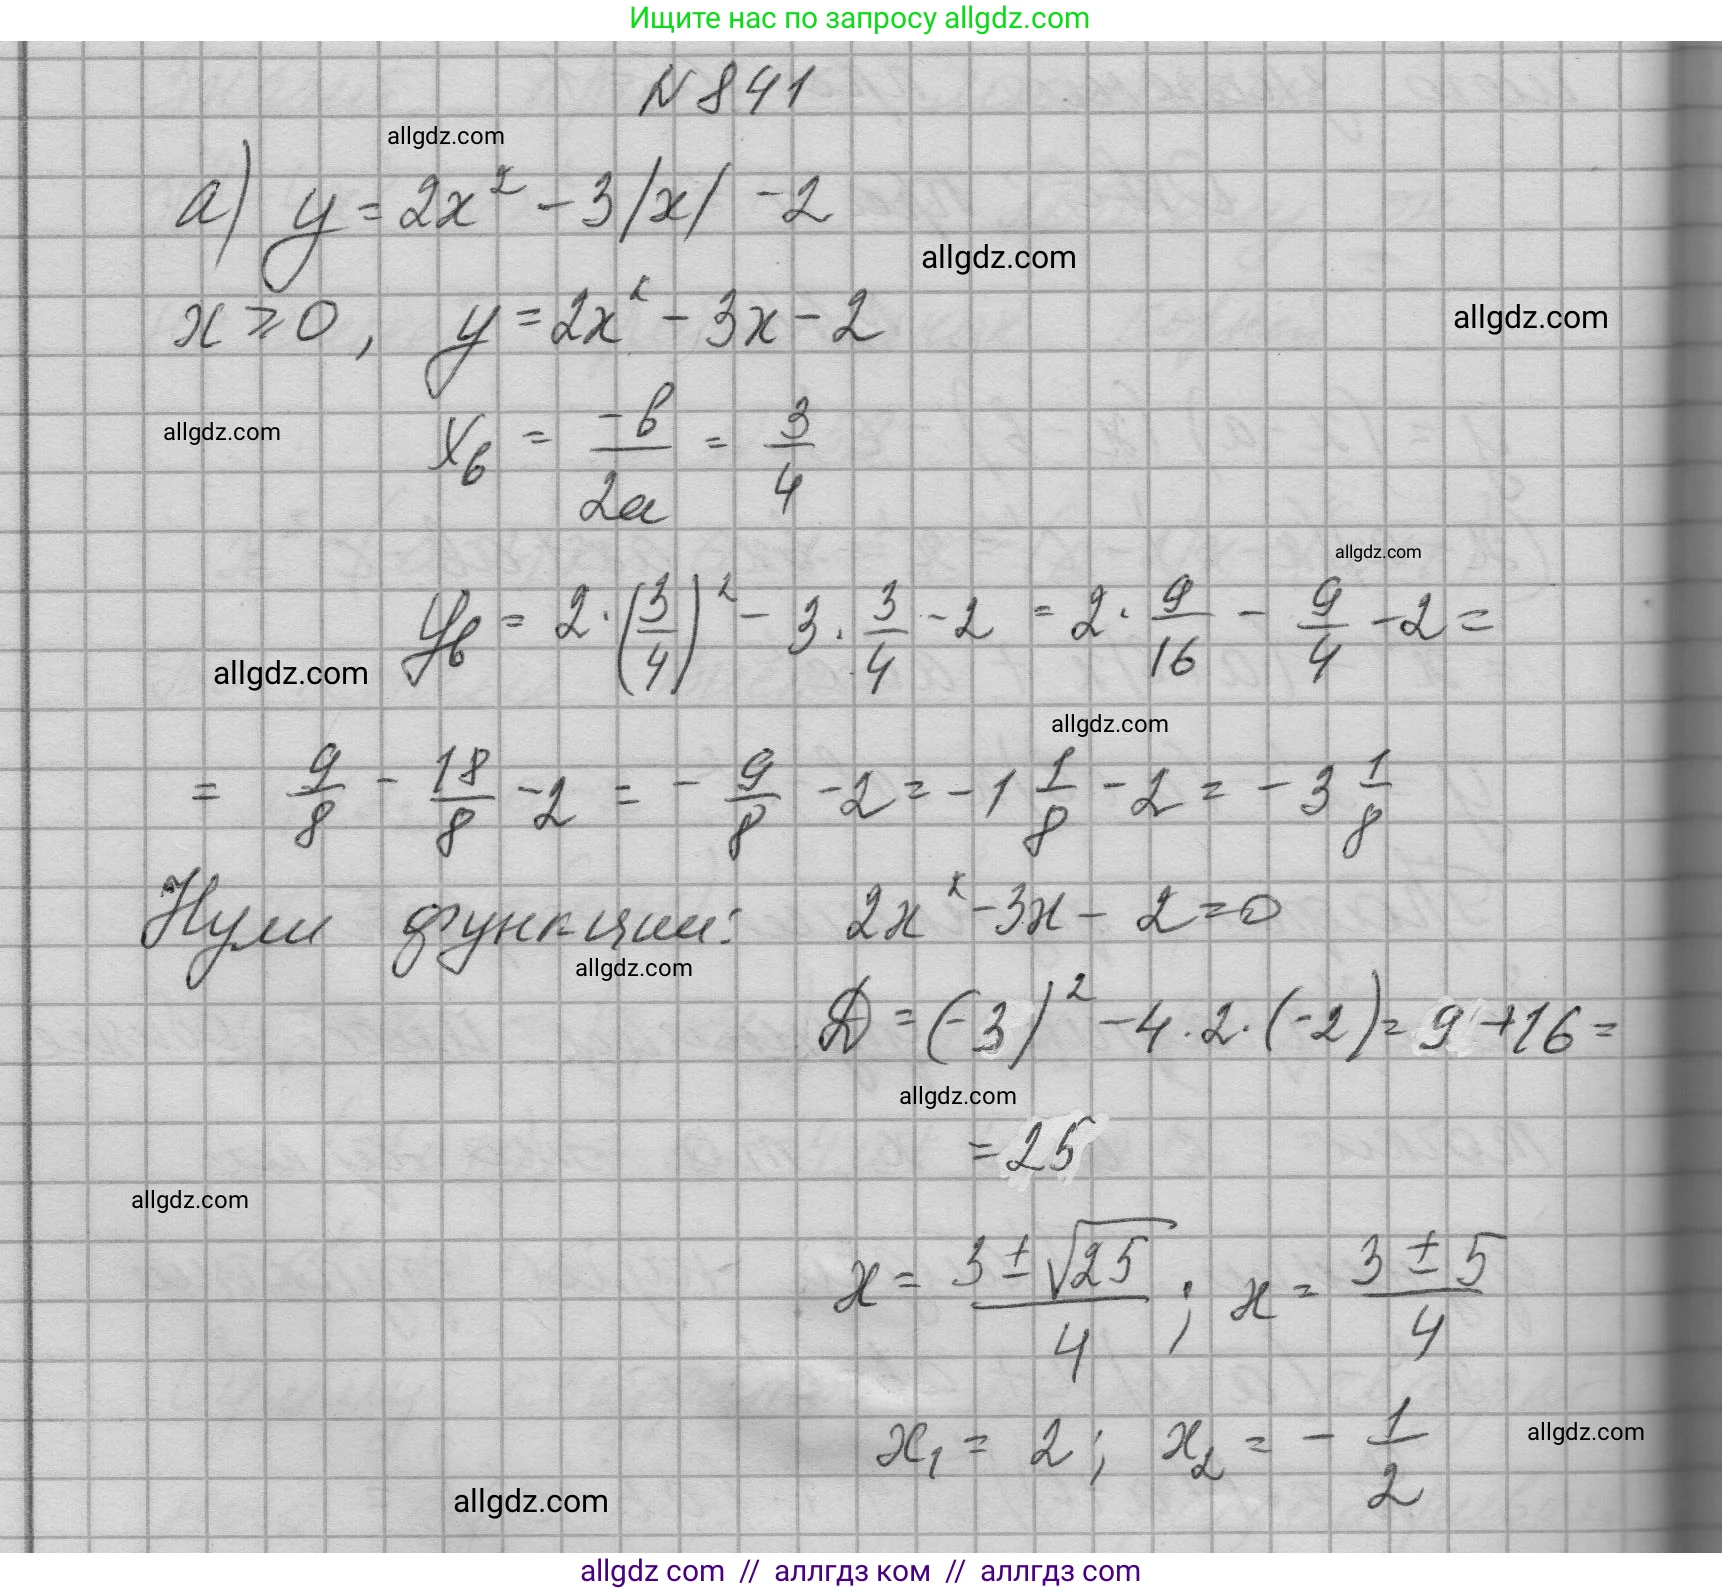 Ищите нас по запросу allgdz.com
N 841
allgdz.com
а) y = 2x² - 3|x| - 2
allgdz.com
x ≥ 0, y = 2x² - 3x - 2
allgdz.com
allgdz.com
xв = -b/2a = 3/4
allgdz.com
yв = 2·(3/4)² - 3·3/4 - 2 = 2·9/16 - 9/4 - 2 =
allgdz.com
allgdz.com
= 9/8 - 18/8 - 2 = -9/8 - 2 = -1 1/8 - 2 = -3 1/8
Нули функции: 2x² - 3x - 2 = 0
allgdz.com
D = (-3)² - 4·2·(-2) = 9 + 16 =
allgdz.com
= 25
allgdz.com
x = (3 ± √25)/4 ; x = (3 ± 5)/4
x₁ = 2; x₂ = -1/2
allgdz.com
allgdz.com
allgdz com // аллгдз ком // allgdz.com